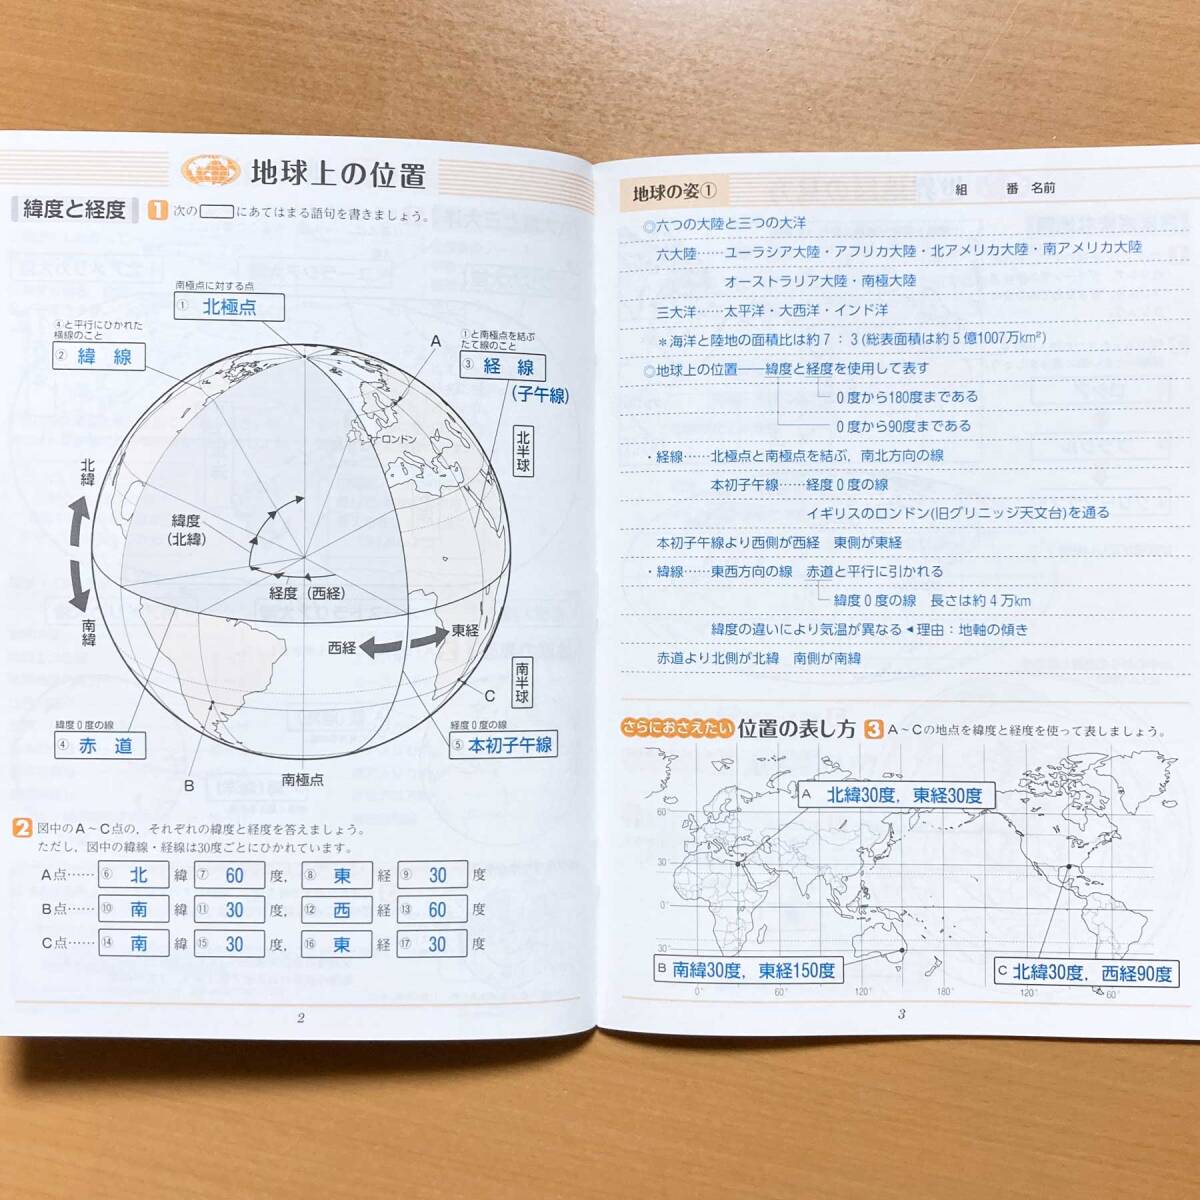 地球上の位置
緯度と経度
1 次の　　にあてはまる語句を書きましょう。
南極点に対する点
① 北極点
④と平行にひかれた
横線のこと
② 緯線
A
①と南極点を結ぶ
たて線のこと
③ 経線
(子午線)
ロンドン
北半球
北緯
緯度
(北緯)
経度 (西経)
南緯
西経
東経
南半球
C
緯度0度の線
④ 赤道
経度0度の線
⑤ 本初子午線
B
南極点
2 図中のA～C点の，それぞれの緯度と経度を答えましょう。
ただし，図中の緯線・経線は30度ごとにひかれています。
A点…… ⑥ 北 緯 ⑦ 60 度， ⑧ 東 経 ⑨ 30 度
B点…… ⑩ 南 緯 ⑪ 30 度， ⑫ 西 経 ⑬ 60 度
C点…… ⑭ 南 緯 ⑮ 30 度， ⑯ 東 経 ⑰ 30 度
2
地球の姿①
組　番　名前
◎六つの大陸と三つの大洋
六大陸……ユーラシア大陸・アフリカ大陸・北アメリカ大陸・南アメリカ大陸
オーストラリア大陸・南極大陸
三大洋……太平洋・大西洋・インド洋
＊海洋と陸地の面積比は約7：3(総表面積は約5億1007万km²)
◎地球上の位置――緯度と経度を使用して表す
0度から180度まである
0度から90度まである
・経線……北極点と南極点を結ぶ，南北方向の線
本初子午線……経度0度の線
イギリスのロンドン(旧グリニッジ天文台)を通る
本初子午線より西側が西経　東側が東経
・緯線……東西方向の線　赤道と平行に引かれる
緯度0度の線　長さは約4万km
緯度の違いにより気温が異なる◀理由：地軸の傾き
赤道より北側が北緯　南側が南緯
さらにおさえたい 位置の表し方 3 A～Cの地点を緯度と経度を使って表しましょう。
A 北緯30度，東経30度
60°
30°
0°
30°
B 南緯30度，東経150度
C 北緯30度，西経90度
0° 60° 120° 180° 120° 60°
3